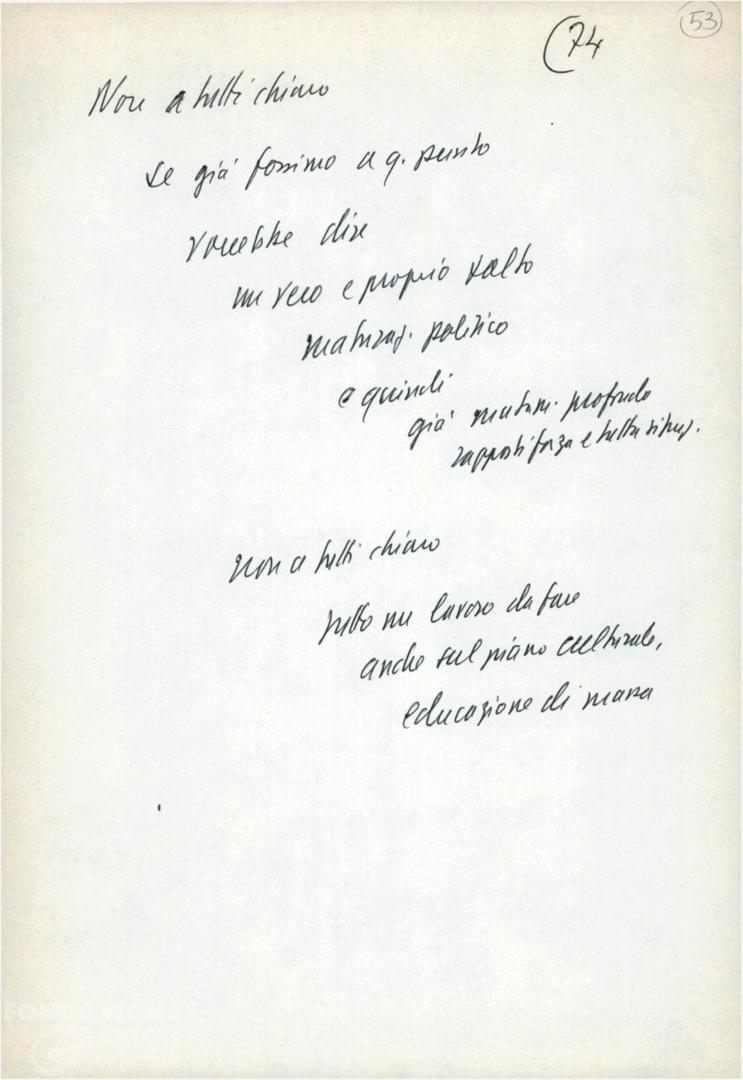 53
(74
Non a tutti chiaro
se già fossimo a q. punto
vorrebbe dire
un vero e proprio salto
maturaz. politico
e quindi
già mutam. profondo
rapporti forza e tutta situaz.
non a tutti chiaro
tutto un lavoro da fare
anche sul piano culturale,
educazione di massa